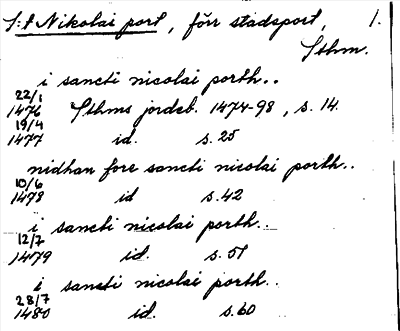 S:t Nikolai port, förr stadsport, 1.
Sthm.
i sancti nicolai porth..
22/1
1476 Sthms jordeb. 1474-98, s. 14.
19/4
1477 id. s. 25
nidhan fore sancti nicolai porth..
10/6
1478 id s. 42
i sancti nicolai porth..
12/7
1479 id. s. 51
i sancti nicolai porth..
28/7
1480 id. s. 60